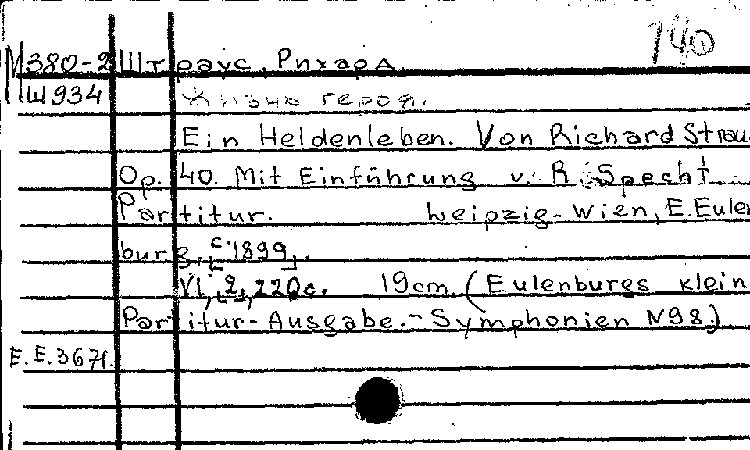 140
М380-2 Штраус, Рихард.
Ш934 Жизнь героя.
Ein Heldenleben. Von Richard Strau
Op. 40. Mit Einführung v. R. Specht
Partitur. Leipzig-Wien, E. Eulen
burg, [c 1899].
VI, 2, 220c. 19cm. (Eulenburgs klein
Partitur-Ausgabe.-Symphonien N98.)
E.E.3671.